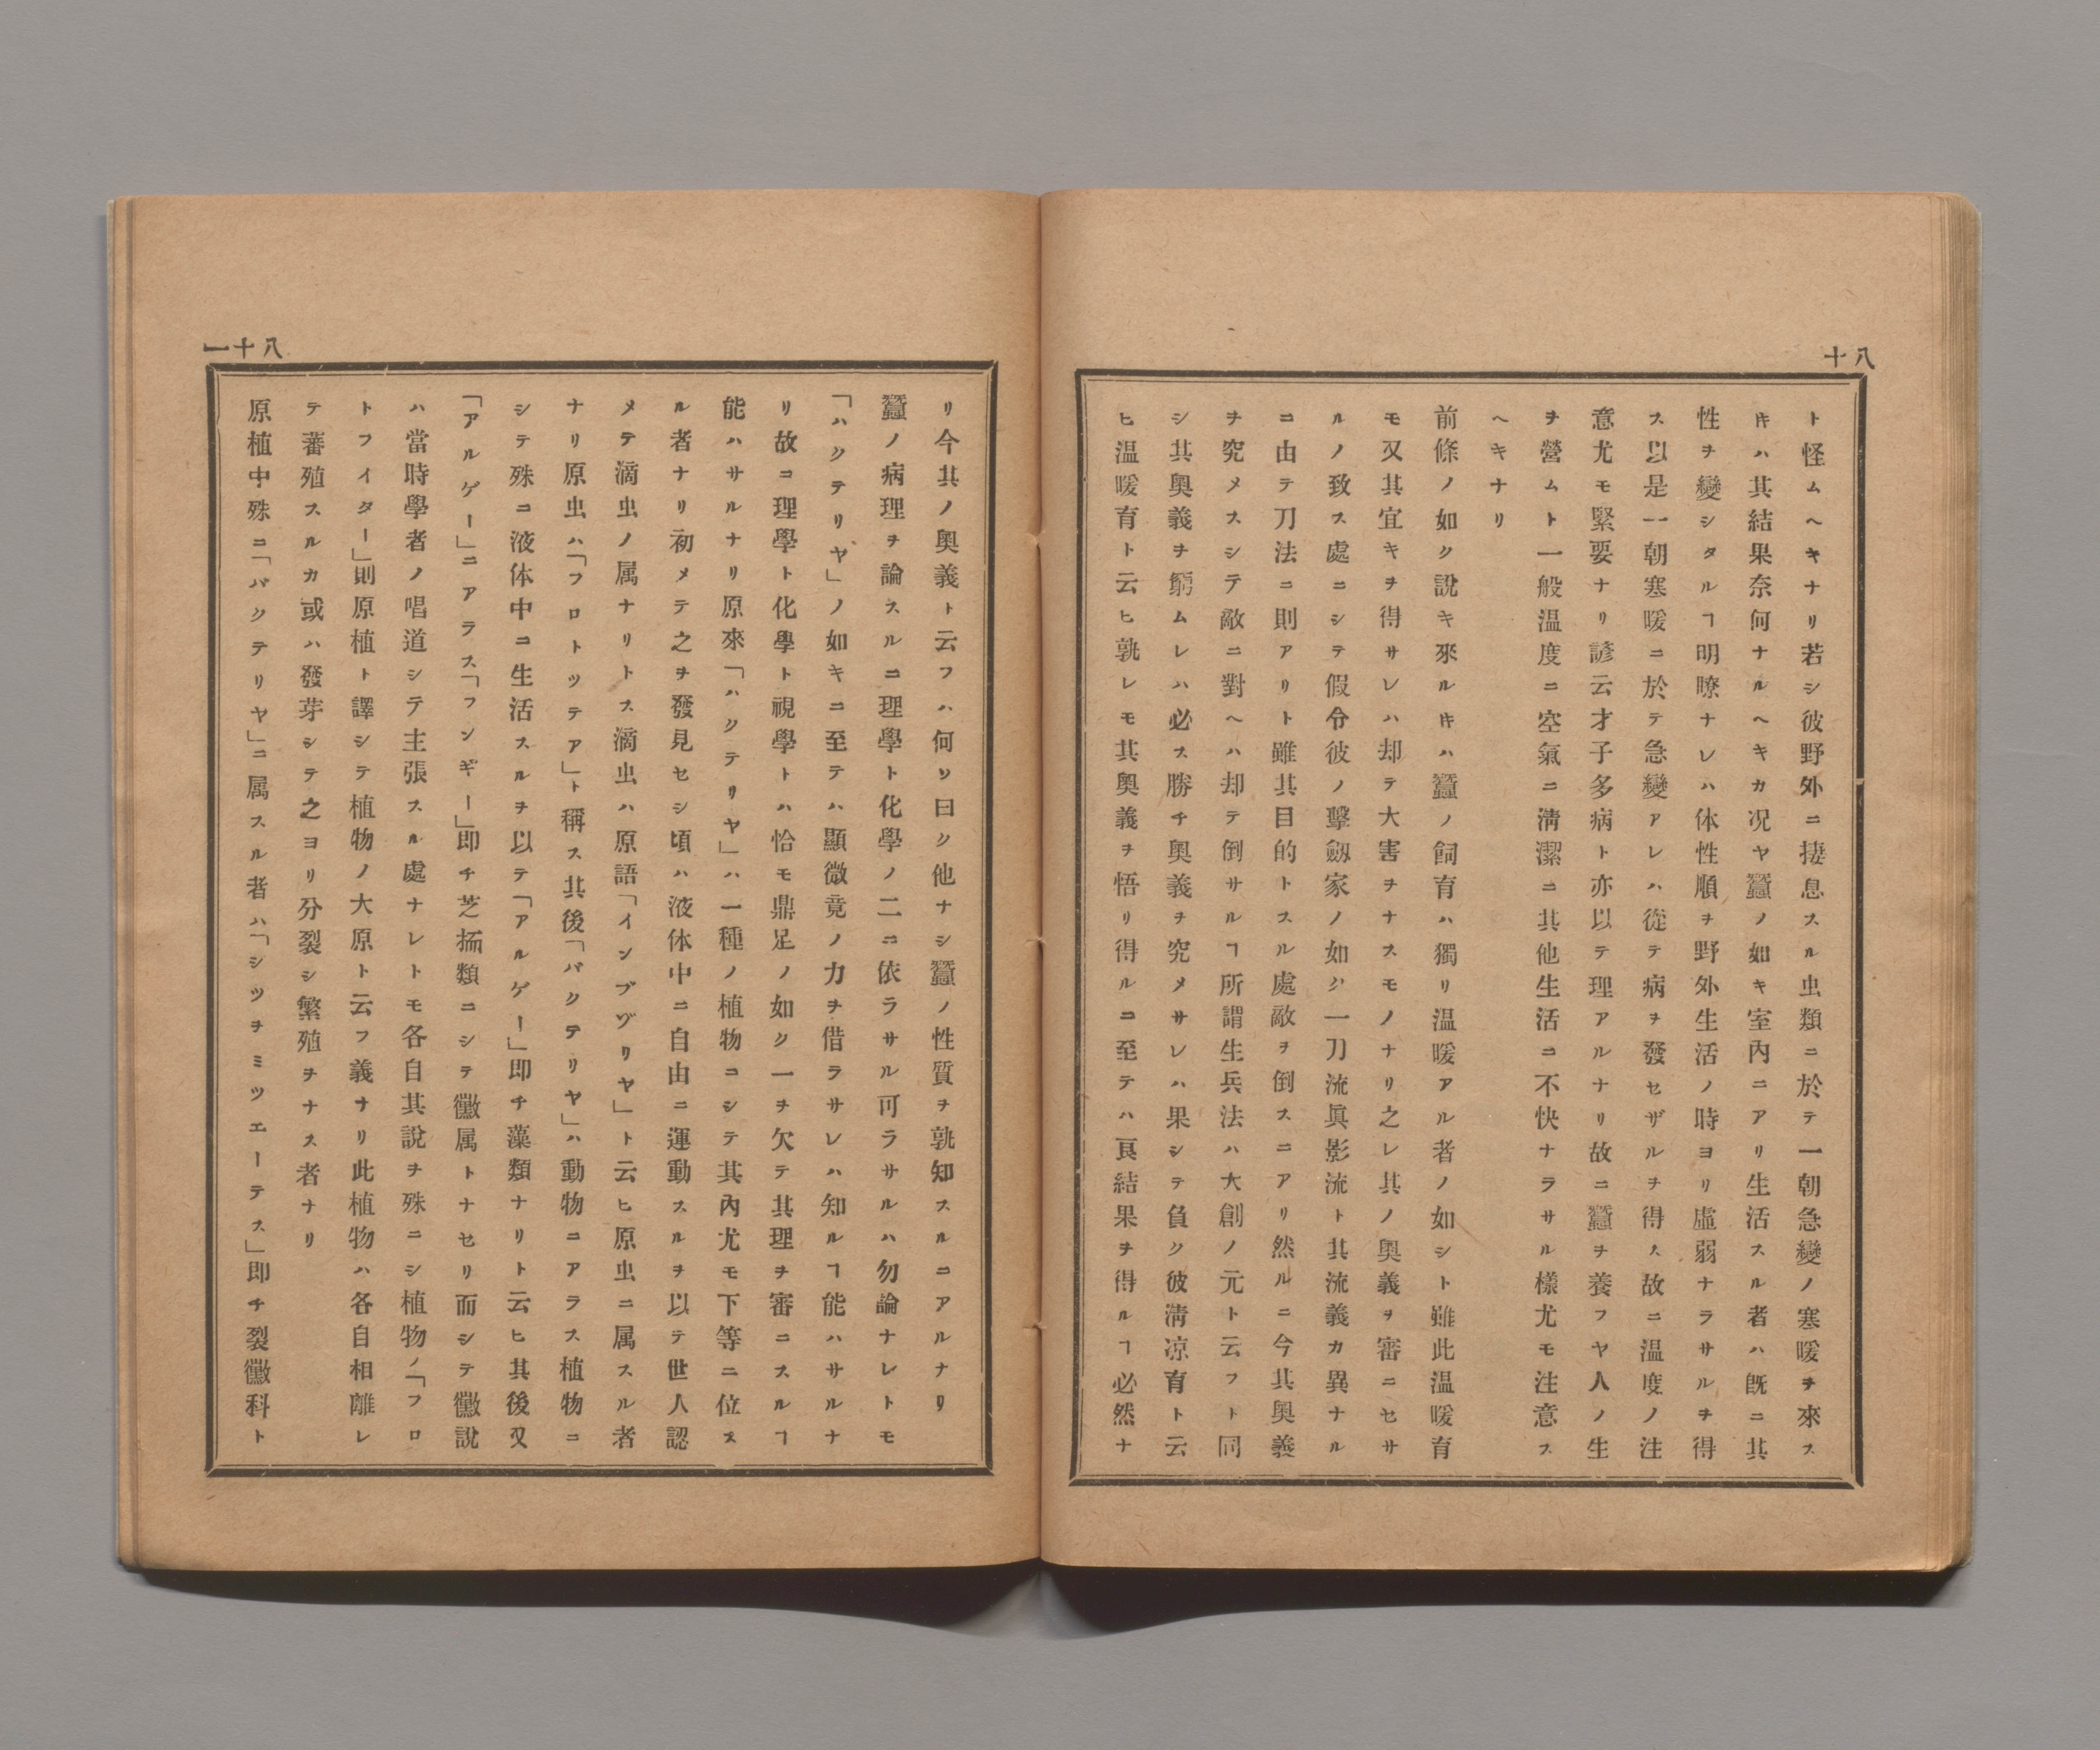 八十
ト怪ムヘキナリ若シ彼野外ニ捿息スル虫類ニ於テ一朝急變ノ寒暖ヲ來ス
𪜈ハ其結果奈何ナルヘキカ况ヤ蠶ノ如キ室內ニアリ生活スル者ハ既ニ其
性ヲ變シタルヿ明瞭ナレハ体性順ヲ野外生活ノ時ヨリ虛弱ナラサルヲ得
ス以是一朝寒暖ニ於テ急變アレハ從テ病ヲ發セザルヲ得ス故ニ温度ノ注
意尤モ緊要ナリ諺云才子多病ト亦以テ理アルナリ故ニ蠶ヲ養フヤ人ノ生
ヲ營ムト一般温度ニ空氣ニ淸潔ニ其他生活ニ不快ナラサル樣尤モ注意ス
ヘキナリ
前條ノ如ク說キ來ル𪜈ハ蠶ノ飼育ハ獨リ温暖アル者ノ如シト雖此温暖育
モ又其宜キヲ得サレハ却テ大害ヲナスモノナリ之レ其ノ奧義ヲ審ニセサ
ルノ致ス處ニシテ假令彼ノ擊劔家ノ如ク一刀流眞影流ト其流義カ異ナル
ニ由テ刀法ニ則アリト雖其目的トスル處敵ヲ倒スニアリ然ルニ今其奧義
ヲ究メスシテ敵ニ對ヘハ却テ倒サルヿ所謂生兵法ハ大創ノ元ト云フト同
シ其奧義ヲ窮ムレハ必ス勝チ奧義ヲ究メサレハ果シテ負ク彼淸凉育ト云
ヒ温暖育ト云ヒ孰レモ其奧義ヲ悟リ得ルニ至テハ良結果ヲ得ルヿ必然ナ
八十一
リ今其ノ奧義ト云フハ何ソ曰ク他ナシ蠶ノ性質ヲ孰知スルニアルナリ
蠶ノ病理ヲ論スルニ理學ト化學ノ二ニ依ラサル可ラサルハ勿論ナレトモ
「ハクテリヤ」ノ如キニ至テハ顯微竟ノ力ヲ借ラサレハ知ルヿ能ハサルナ
リ故ニ理學ト化學ト視學トハ恰モ鼎足ノ如ク一ヲ欠テ其理ヲ審ニスルヿ
能ハサルナリ原來「ハクテリヤ」ハ一種ノ植物ニシテ其內尤モ下等ニ位ス
ル者ナリ初メテ之ヲ發見セシ頃ハ液体中ニ自由ニ運動スルヲ以テ世人認
メテ滴虫ノ属ナリトス滴虫ハ原語「インブヅリヤ」ト云ヒ原虫ニ属スル者
ナリ原虫ハ「フロトツテア」ト稱ス其後「バクテリヤ」ハ動物ニアラス植物ニ
シテ殊ニ液体中ニ生活スルヲ以テ「アルゲー」即チ藻類ナリト云ヒ其後又
「アルゲー」ニアラス「フンギー」即チ芝栭類ニシテ黴属トナセリ而シテ黴說
ハ當時學者ノ唱道シテ主張スル處ナレトモ各自其說ヲ殊ニシ植物ノ「フロ
トフイター」則原植ト譯シテ植物ノ大原ト云フ義ナリ此植物ハ各自相離レ
テ蕃殖スルカ或ハ發芽シテ之ヨリ分裂シ繁殖ヲナス者ナリ
原植中殊ニ「バクテリヤ」ニ属スル者ハ「シツヲミツエーテス」即チ裂黴科ト